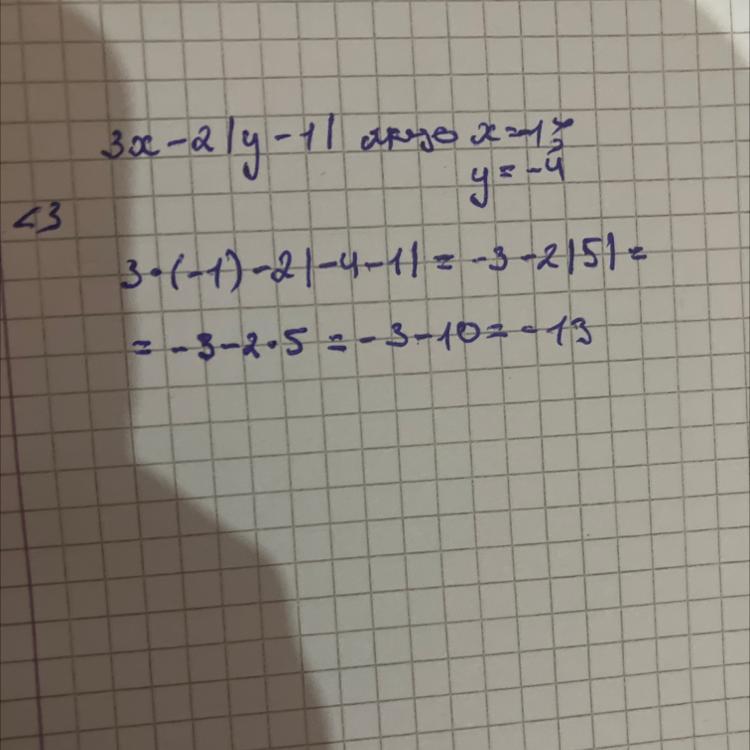 3x - 2|y - 1| якщо x = -1;
y = -4
<3
3·(-1) - 2|-4 - 1| = -3 - 2|5| =
= -3 - 2·5 = -3 - 10 = -13